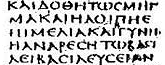 ΚΑΙΔΟΘΗΤΩCΜΗΓ
ΜΑΚΑΙΗΛΟΙΠΗΕ
ΠΙΜΕΛΙΑΚΑΙΓΥΝΗ
ΗΑΝΑΡΕCΗΤΩΒΑCΙ
ΛΕΙΒΑCΙΛΕΥCΕΙΑΝ